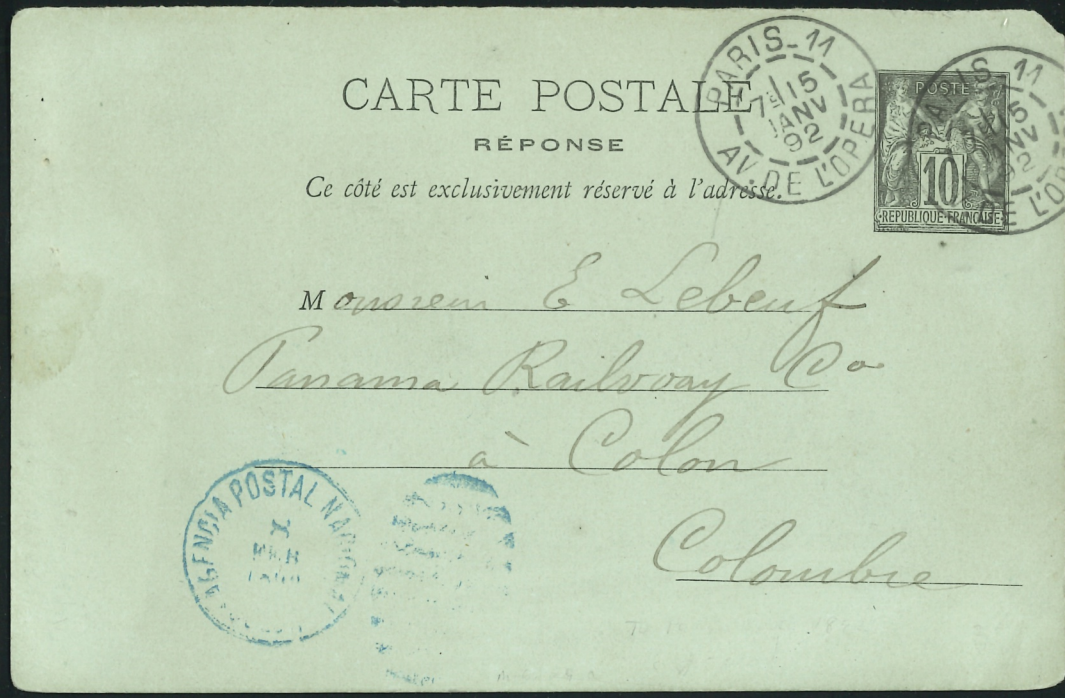 CARTE POSTALE
RÉPONSE
Ce côté est exclusivement réservé à l'adresse.
PARIS-11
7E 15
JANV
92
AV. DE L'OPERA
POSTE
10
REPUBLIQUE FRANÇAISE
PARIS 11
15
JANV
92
DE L'OP
Monsieur E Lebeuf
Panama Railway Co
à Colon
Colombie
AGENCIA POSTAL NACIONAL
1
FEB